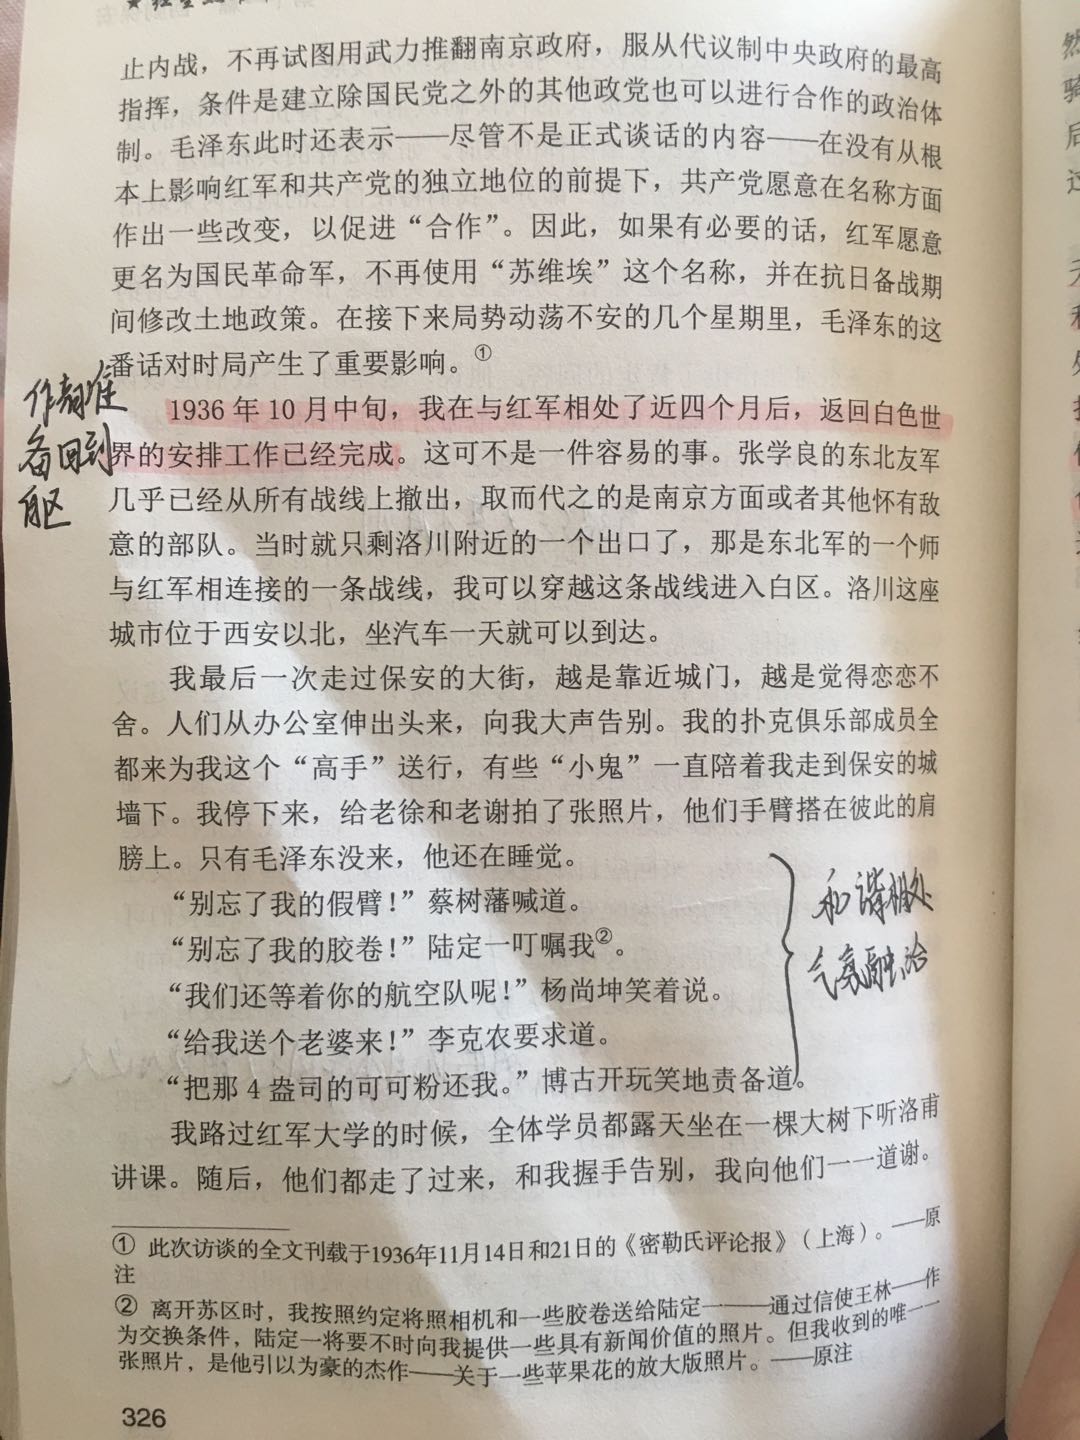 止内战，不再试图用武力推翻南京政府，服从代议制中央政府的最高
指挥，条件是建立除国民党之外的其他政党也可以进行合作的政治体
制。毛泽东此时还表示——尽管不是正式谈话的内容——在没有从根
本上影响红军和共产党的独立地位的前提下，共产党愿意在名称方面
作出一些改变，以促进“合作”。因此，如果有必要的话，红军愿意
更名为国民革命军，不再使用“苏维埃”这个名称，并在抗日备战期
间修改土地政策。在接下来局势动荡不安的几个星期里，毛泽东的这
番话对时局产生了重要影响。①
作者准
备回到
白区
1936 年 10 月中旬，我在与红军相处了近四个月后，返回白色世
界的安排工作已经完成。这可不是一件容易的事。张学良的东北友军
几乎已经从所有战线上撤出，取而代之的是南京方面或者其他怀有敌
意的部队。当时就只剩洛川附近的一个出口了，那是东北军的一个师
与红军相连接的一条战线，我可以穿越这条战线进入白区。洛川这座
城市位于西安以北，坐汽车一天就可以到达。
我最后一次走过保安的大街，越是靠近城门，越是觉得恋恋不
舍。人们从办公室伸出头来，向我大声告别。我的扑克俱乐部成员全
都来为我这个“高手”送行，有些“小鬼”一直陪着我走到保安的城
墙下。我停下来，给老徐和老谢拍了张照片，他们手臂搭在彼此的肩
膀上。只有毛泽东没来，他还在睡觉。
“别忘了我的假臂！”蔡树藩喊道。
“别忘了我的胶卷！”陆定一叮嘱我②。
“我们还等着你的航空队呢！”杨尚坤笑着说。
“给我送个老婆来！”李克农要求道。
“把那 4 盎司的可可粉还我。”博古开玩笑地责备道。
和谐相处
气氛融洽
我路过红军大学的时候，全体学员都露天坐在一棵大树下听洛甫
讲课。随后，他们都走了过来，和我握手告别，我向他们一一道谢。
① 此次访谈的全文刊载于1936年11月14日和21日的《密勒氏评论报》（上海）。——原
注
② 离开苏区时，我按照约定将照相机和一些胶卷送给陆定一——通过信使王林——作
为交换条件，陆定一将要不时向我提供一些具有新闻价值的照片。但我收到的唯一一
张照片，是他引以为豪的杰作——关于一些苹果花的放大版照片。——原注
326